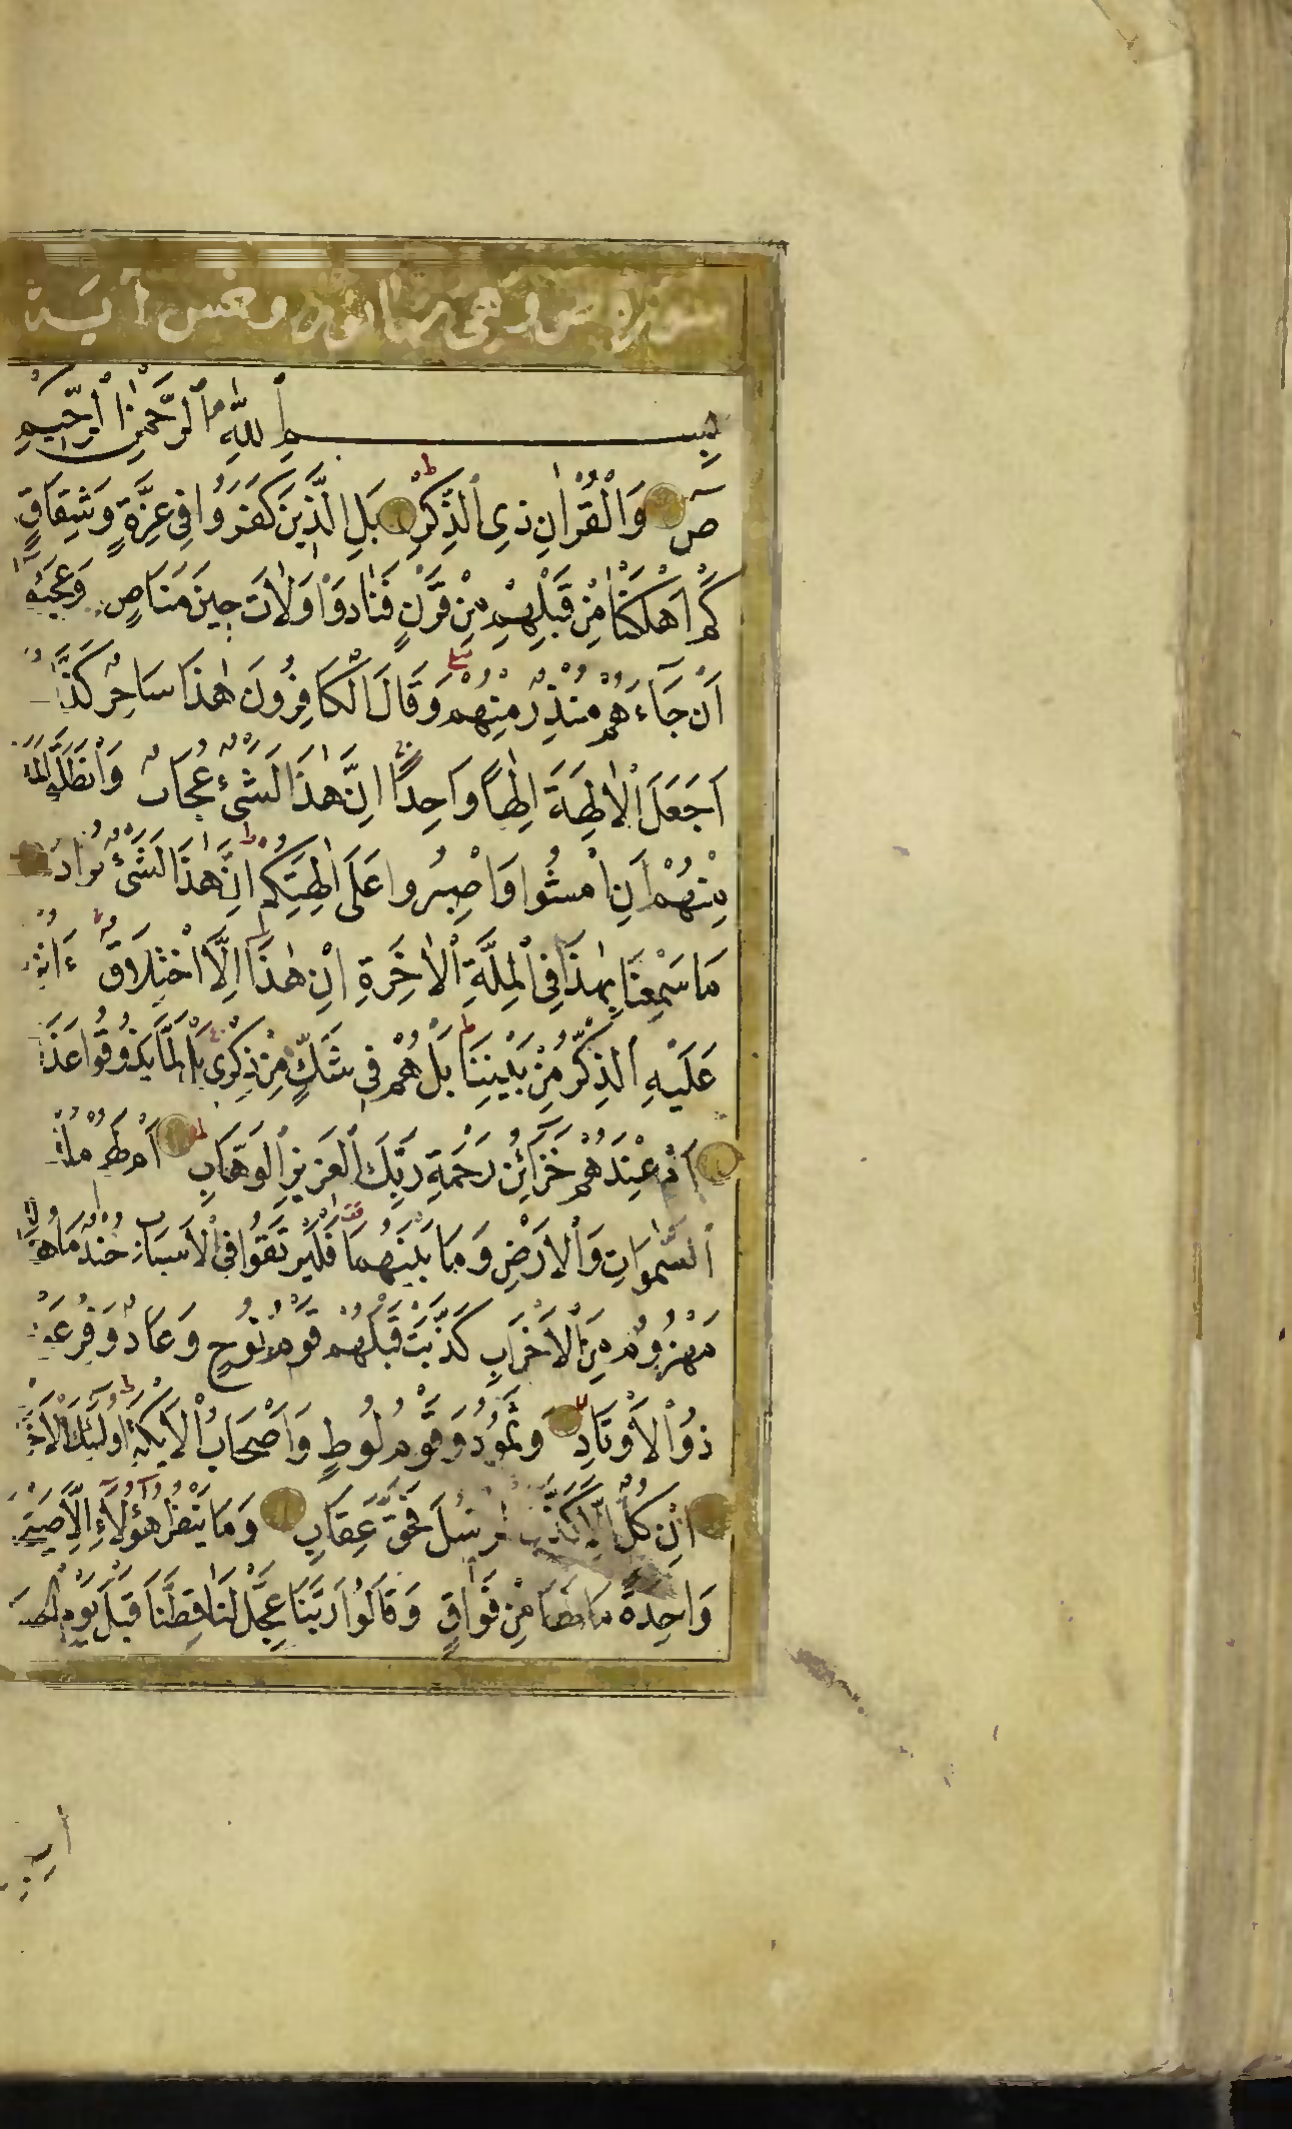 سورة ص وهي ثمانون وخمس آية
بِسْمِ اللّٰهِ الرَّحْمٰنِ الرَّحِيمِ
صٓ وَالْقُرْاٰنِ ذِى الذِّكْرِ بَلِ الَّذِينَ كَفَرُوا فِى عِزَّةٍ وَشِقَاقٍ
كَمْ اَهْلَكْنَا مِنْ قَبْلِهِمْ مِنْ قَرْنٍ فَنَادَوْا وَلَاتَ حِينَ مَنَاصٍ وَعَجِبُوا
اَنْ جَاءَهُمْ مُنْذِرٌ مِنْهُمْ وَقَالَ الْكَافِرُونَ هٰذَا سَاحِرٌ كَذَّا
اَجَعَلَ الْاٰلِهَةَ اِلٰهًا وَاحِدًا اِنَّ هٰذَا لَشَىْءٌ عُجَابٌ وَانْطَلَقَ الْمَلَا
مِنْهُمْ اَنِ امْشُوا وَاصْبِرُوا عَلَى اٰلِهَتِكُمْ اِنَّ هٰذَا لَشَىْءٌ يُرَادُ
مَا سَمِعْنَا بِهٰذَا فِى الْمِلَّةِ الْاٰخِرَةِ اِنْ هٰذَا اِلَّا اخْتِلَاقٌ ءَاُنْزِ
عَلَيْهِ الذِّكْرُ مِنْ بَيْنِنَا بَلْ هُمْ فِى شَكٍّ مِنْ ذِكْرِى بَلْ لَمَّا يَذُوقُوا عَذَا
اَمْ عِنْدَهُمْ خَزَائِنُ رَحْمَةِ رَبِّكَ الْعَزِيزِ الْوَهَّابِ اَمْ لَهُمْ مُلْكُ
السَّمٰوَاتِ وَالْاَرْضِ وَمَا بَيْنَهُمَا فَلْيَرْتَقُوا فِى الْاَسْبَابِ جُنْدٌ مَا هُنَا
مَهْزُومٌ مِنَ الْاَحْزَابِ كَذَّبَتْ قَبْلَهُمْ قَوْمُ نُوحٍ وَعَادٌ وَفِرْعَوْ
ذُو الْاَوْتَادِ وَثَمُودُ وَقَوْمُ لُوطٍ وَاَصْحَابُ الْاَيْكَةِ اُولٰئِكَ الْاَحْزَ
اِنْ كُلٌّ اِلَّا كَذَّبَ الرُّسُلَ فَحَقَّ عِقَابِ وَمَا يَنْظُرُ هٰؤُلَاءِ اِلَّا صَيْحَةً
وَاحِدَةً مَا لَهَا مِنْ فَوَاقٍ وَقَالُوا رَبَّنَا عَجِّلْ لَنَا قِطَّنَا قَبْلَ يَوْمِ الْحِسَ